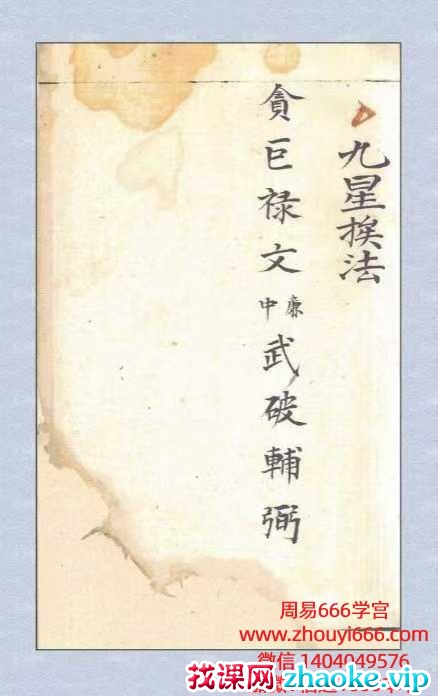 九星挨法
貪巨禄文廉中武破輔弼
周易666学宫
www.zhouyi666.com
微信 1404049576
找课网zhaoke.vip